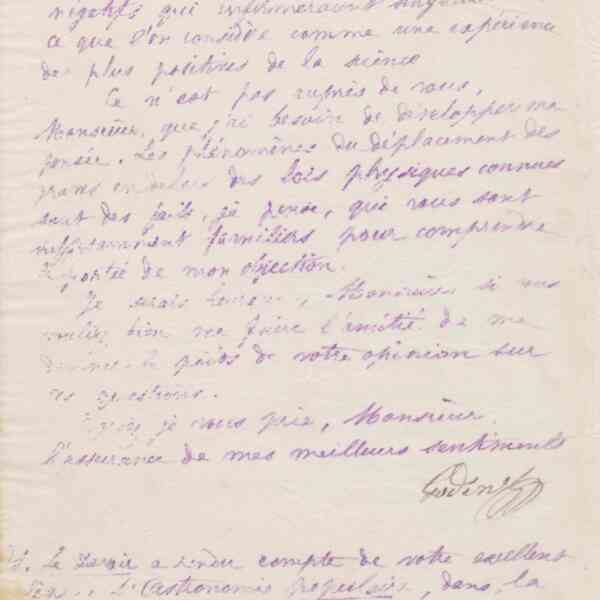 négatifs qui infirmeraient
ce que l'on considère comme une expérience
des plus positives de la science
Ce n'est pas auprès de vous,
Monsieur, que j'ai besoin de développer ma
pensée. Les phénomènes du déplacement des
graves en dehors des lois physiques connues
sont des faits, je pense, que vous sont
suffisamment familiers pour comprendre
la portée de mon objection.
Je serais heureux, Monsieur, si vous
vouliez bien me faire l'amitié de me
donner le poids de votre opinion sur
ces questions.
Agréez je vous prie, Monsieur,
l'assurance de mes meilleurs sentiments
Godin
Le Devoir a rendu compte de votre excellent
L'Astronomie populaire, dans la